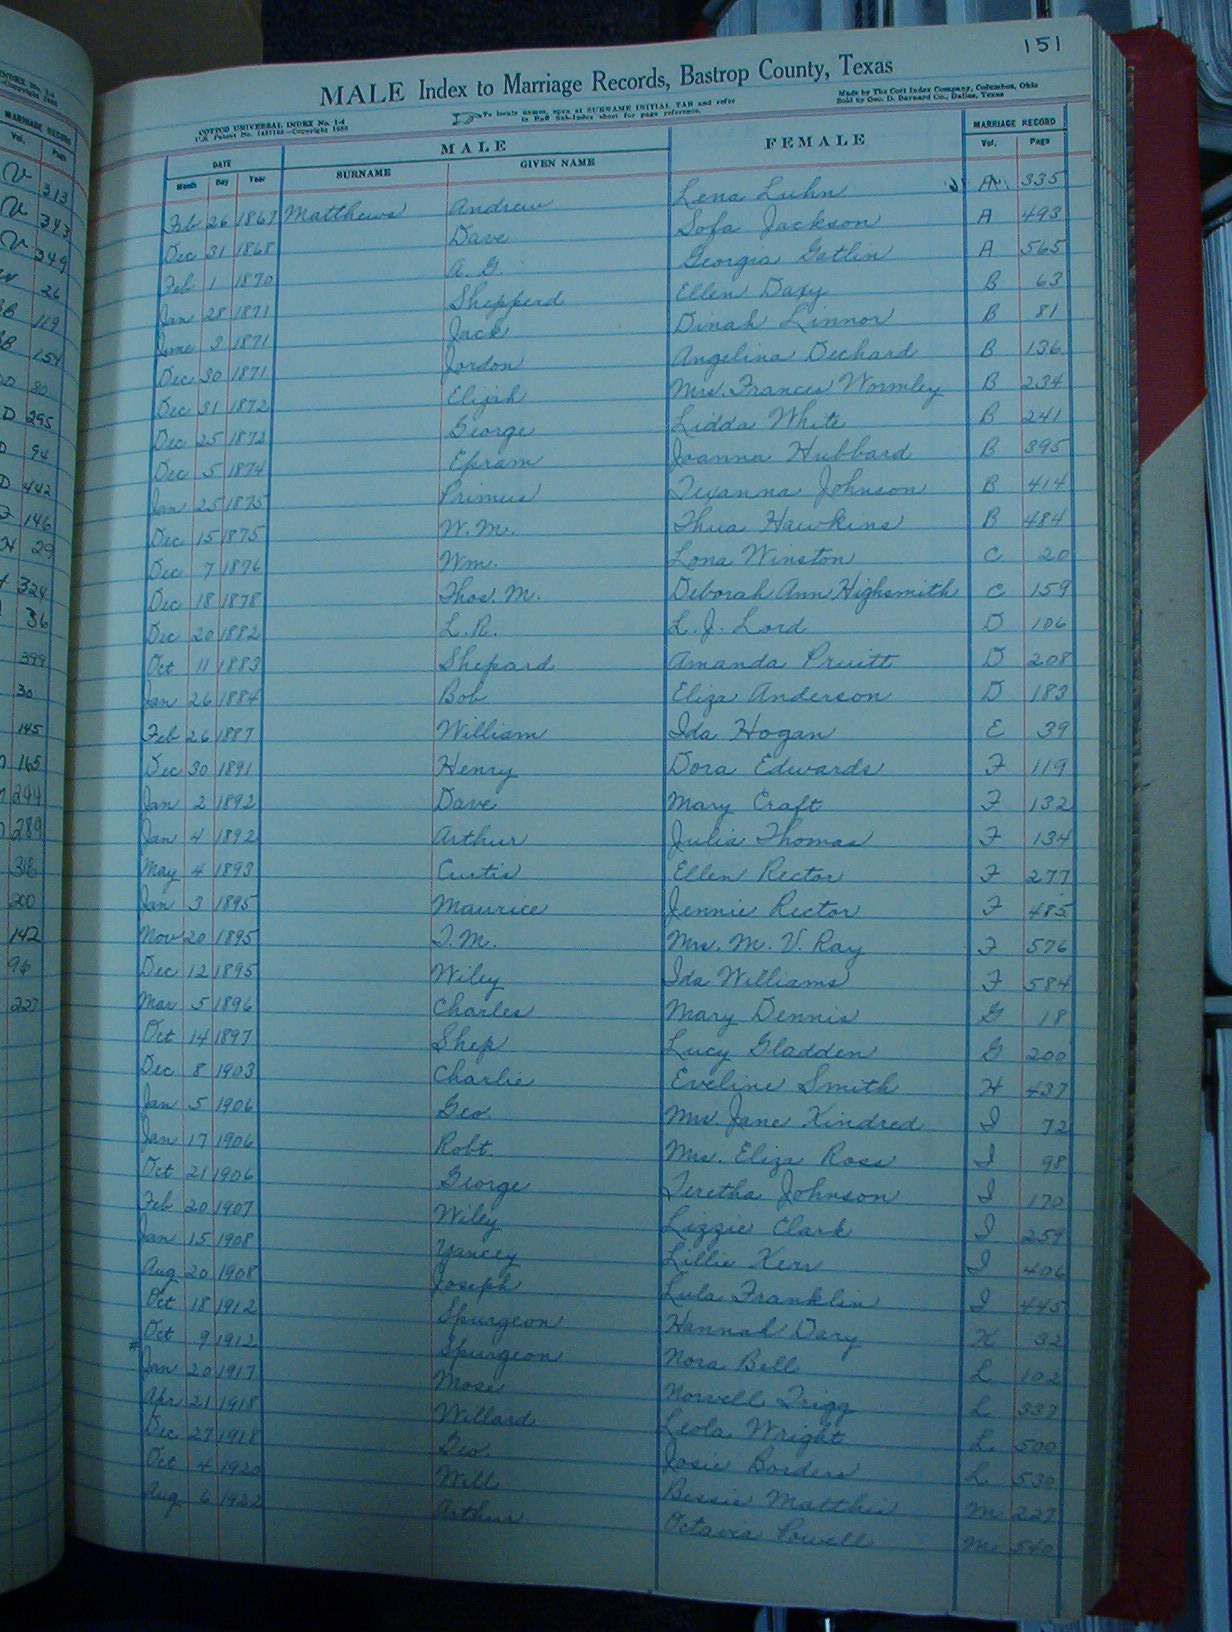 INDEX No. 1-4
MARRIAGE RECORD
Vol. Page
V 313
V 343
V 349
26
BB 119
BB 154
80
D 295
94
D 442
146
29
324
36
399
30
145
165
294
289
318
200
142
96
227
151
MALE Index to Marriage Records, Bastrop County, Texas
COTTCO UNIVERSAL INDEX No. 1-4
To locate names, open at SURNAME INITIAL TAB and refer
to Half Sub-Index sheet for page reference.
Made by The Cott Index Company, Columbus, Ohio
Sold by Geo. D. Barnard Co., Dallas, Texas
DATE MALE FEMALE MARRIAGE RECORD
Month Day Year SURNAME GIVEN NAME Vol. Page
Feb 26 1867 Matthews Andrew Lena Luhn A 335
Dec 31 1868 Dave Sofa Jackson A 493
Feb 1 1870 A. G. Georgia Gatlin A 565
Jan 28 1871 Shepperd Ellen Daxy B 63
June 3 1871 Jack Dinah Linnor B 81
Dec 30 1871 Jordon Angelina Dechard B 136
Dec 31 1872 Elijah Mrs. Frances Wormley B 234
Dec 25 1872 George Lidda White B 241
Dec 5 1874 Epram Joanna Hubbard B 395
Jan 25 1875 Primus Texanna Johnson B 414
Dec 15 1875 W. M. Thua Hawkins B 484
Dec 7 1876 Wm. Lona Winston C 20
Dec 18 1878 Thos. M. Deborah Ann Highsmith C 159
Dec 20 1882 L. R. L. J. Lord D 106
Oct 11 1883 Shepard Amanda Pruitt D 208
Jan 26 1884 Bob Eliza Anderson D 183
Feb 26 1887 William Ida Hogan E 39
Dec 30 1891 Henry Dora Edwards F 119
Jan 2 1892 Dave Mary Craft F 132
Jan 4 1892 Arthur Julia Thomas F 134
May 4 1893 Curtis Ellen Rector F 277
Jan 3 1895 Maurice Jennie Rector F 485
Nov 20 1895 T. M. Mrs. M. V. Ray F 576
Dec 12 1895 Wiley Ida Williams F 584
Mar 5 1896 Charles Mary Dennis G 18
Oct 14 1897 Shep Lucy Gladden G 200
Dec 8 1903 Charlie Eveline Smith H 437
Jan 5 1906 Geo. Mrs. Jane Kindred I 72
Jan 17 1906 Robt. Mrs. Eliza Ross I 98
Oct 21 1906 George Teretha Johnson I 170
Feb 20 1907 Wiley Lizzie Clark I 259
Jan 15 1908 Yancey Lillie Kerr I 406
Aug 20 1908 Joseph Lula Franklin I 445
Oct 18 1912 Spurgeon Hannah Dary K 32
Oct 9 1912 Spurgeon Nora Bell L 102
# Jan 20 1917 Mose Norvell Trigg L 337
Apr 21 1918 Willard Leola Wright L 500
Dec 27 1918 Geo. Josie Borders L 530
Oct 4 1920 Will Bessie Matthis M 227
Aug 6 1922 Arthur Octavia Powell M 540